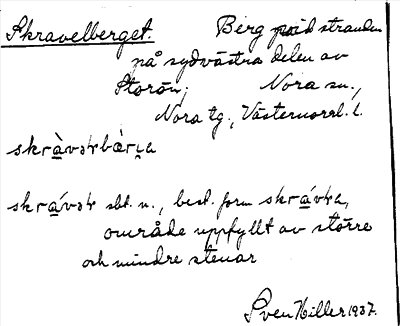 Skravelberget. Berg vid stranden
på sydvästra delen av
Storön; Nora sn.,
Nora tg., Västernorrl. l.
skràvəɫbàrɩ̯a
skrávəɫ sbt. n., best. form skrávɫa,
område uppfyllt av större
och mindre stenar
Sven Hiller 1937.